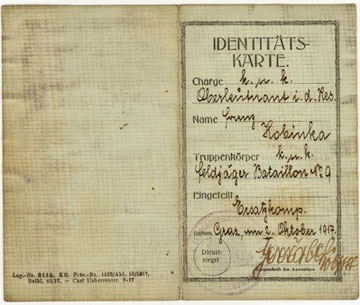 Lag.-Nr. 3115. KM. Präs.-Nr. 1485/Abt. 10/1917,
Beibl. 40/17. – Carl Ueberreuter 9-17
IDENTITÄTS-
KARTE.
Charge k. u. k.
Oberleutnant i. d. Res.
Name Franz
Hobinka
Truppenkörper k. u. k.
Feldjäger Bataillon No 9
Eingeteilt
Ersatzkomp.
Datum Graz, am 2. Oktober 1917.
Dienst-
siegel
Unterschrift des Ausstellers